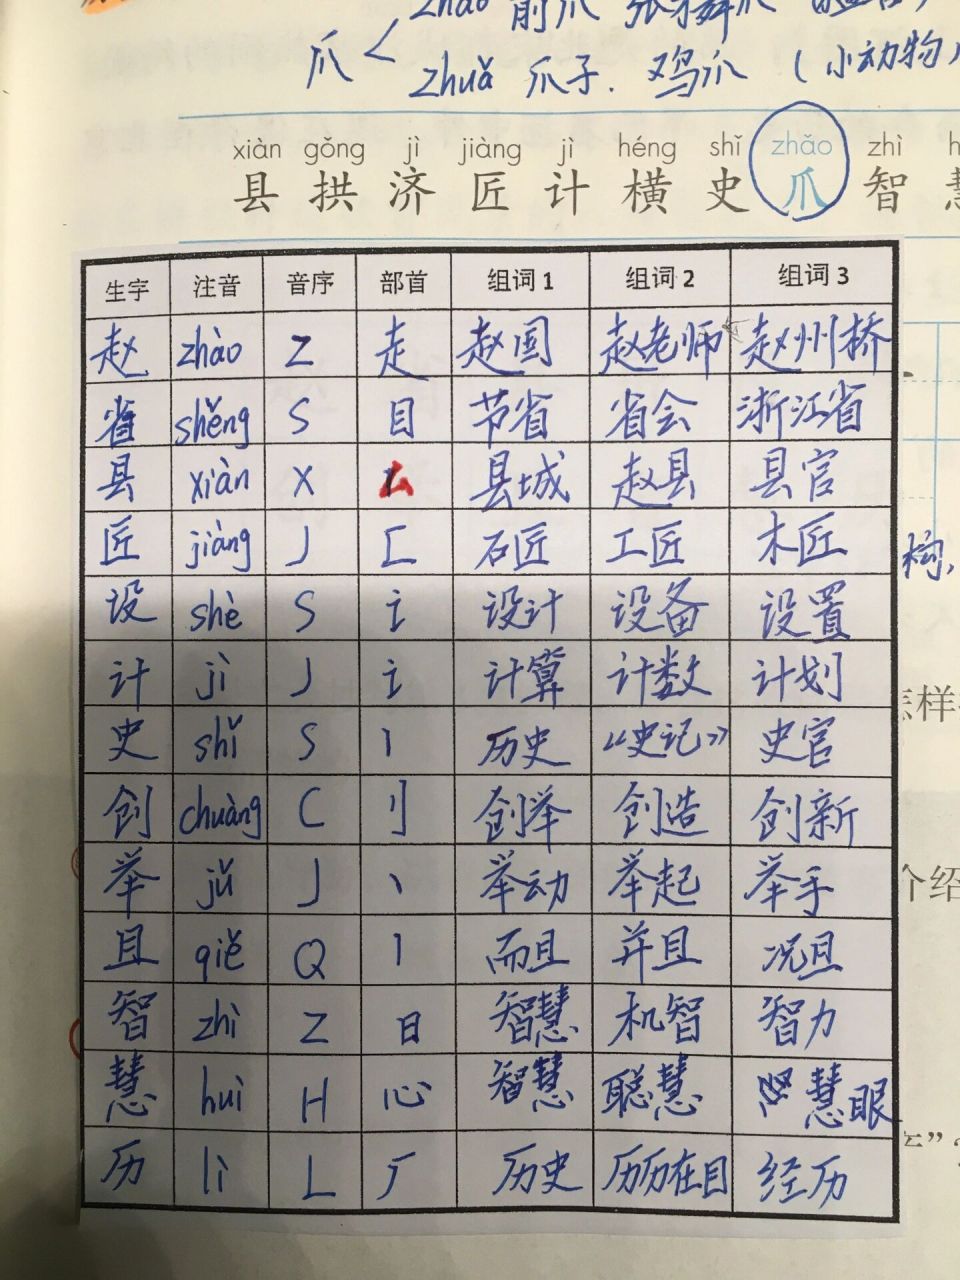 爪 zhǎo 前爪 张牙舞爪
zhuǎ 爪子. 鸡爪 (小动物)
xiàn gǒng jì jiàng jì héng shǐ zhǎo zhì
县 拱 济 匠 计 横 史 爪 智
生字 注音 音序 部首 组词1 组词2 组词3
赵 zhào Z 走 赵国 赵老师 赵州桥
省 shěng S 目 节省 省会 浙江省
县 xiàn X 厶 县城 赵县 县官
匠 jiàng J 匚 石匠 工匠 木匠
构,
设 shè S 讠 设计 设备 设置
计 jì J 讠 计算 计数 计划
怎样
史 shǐ S 丨 历史 《史记》 史官
创 chuàng C 刂 创举 创造 创新
举 jǔ J 丶 举动 举起 举手
介绍
且 qiě Q 丨 而且 并且 况且
智 zhì Z 日 智慧 机智 智力
慧 huì H 心 智慧 聪慧 慧眼
历 lì L 厂 历史 历历在目 经历